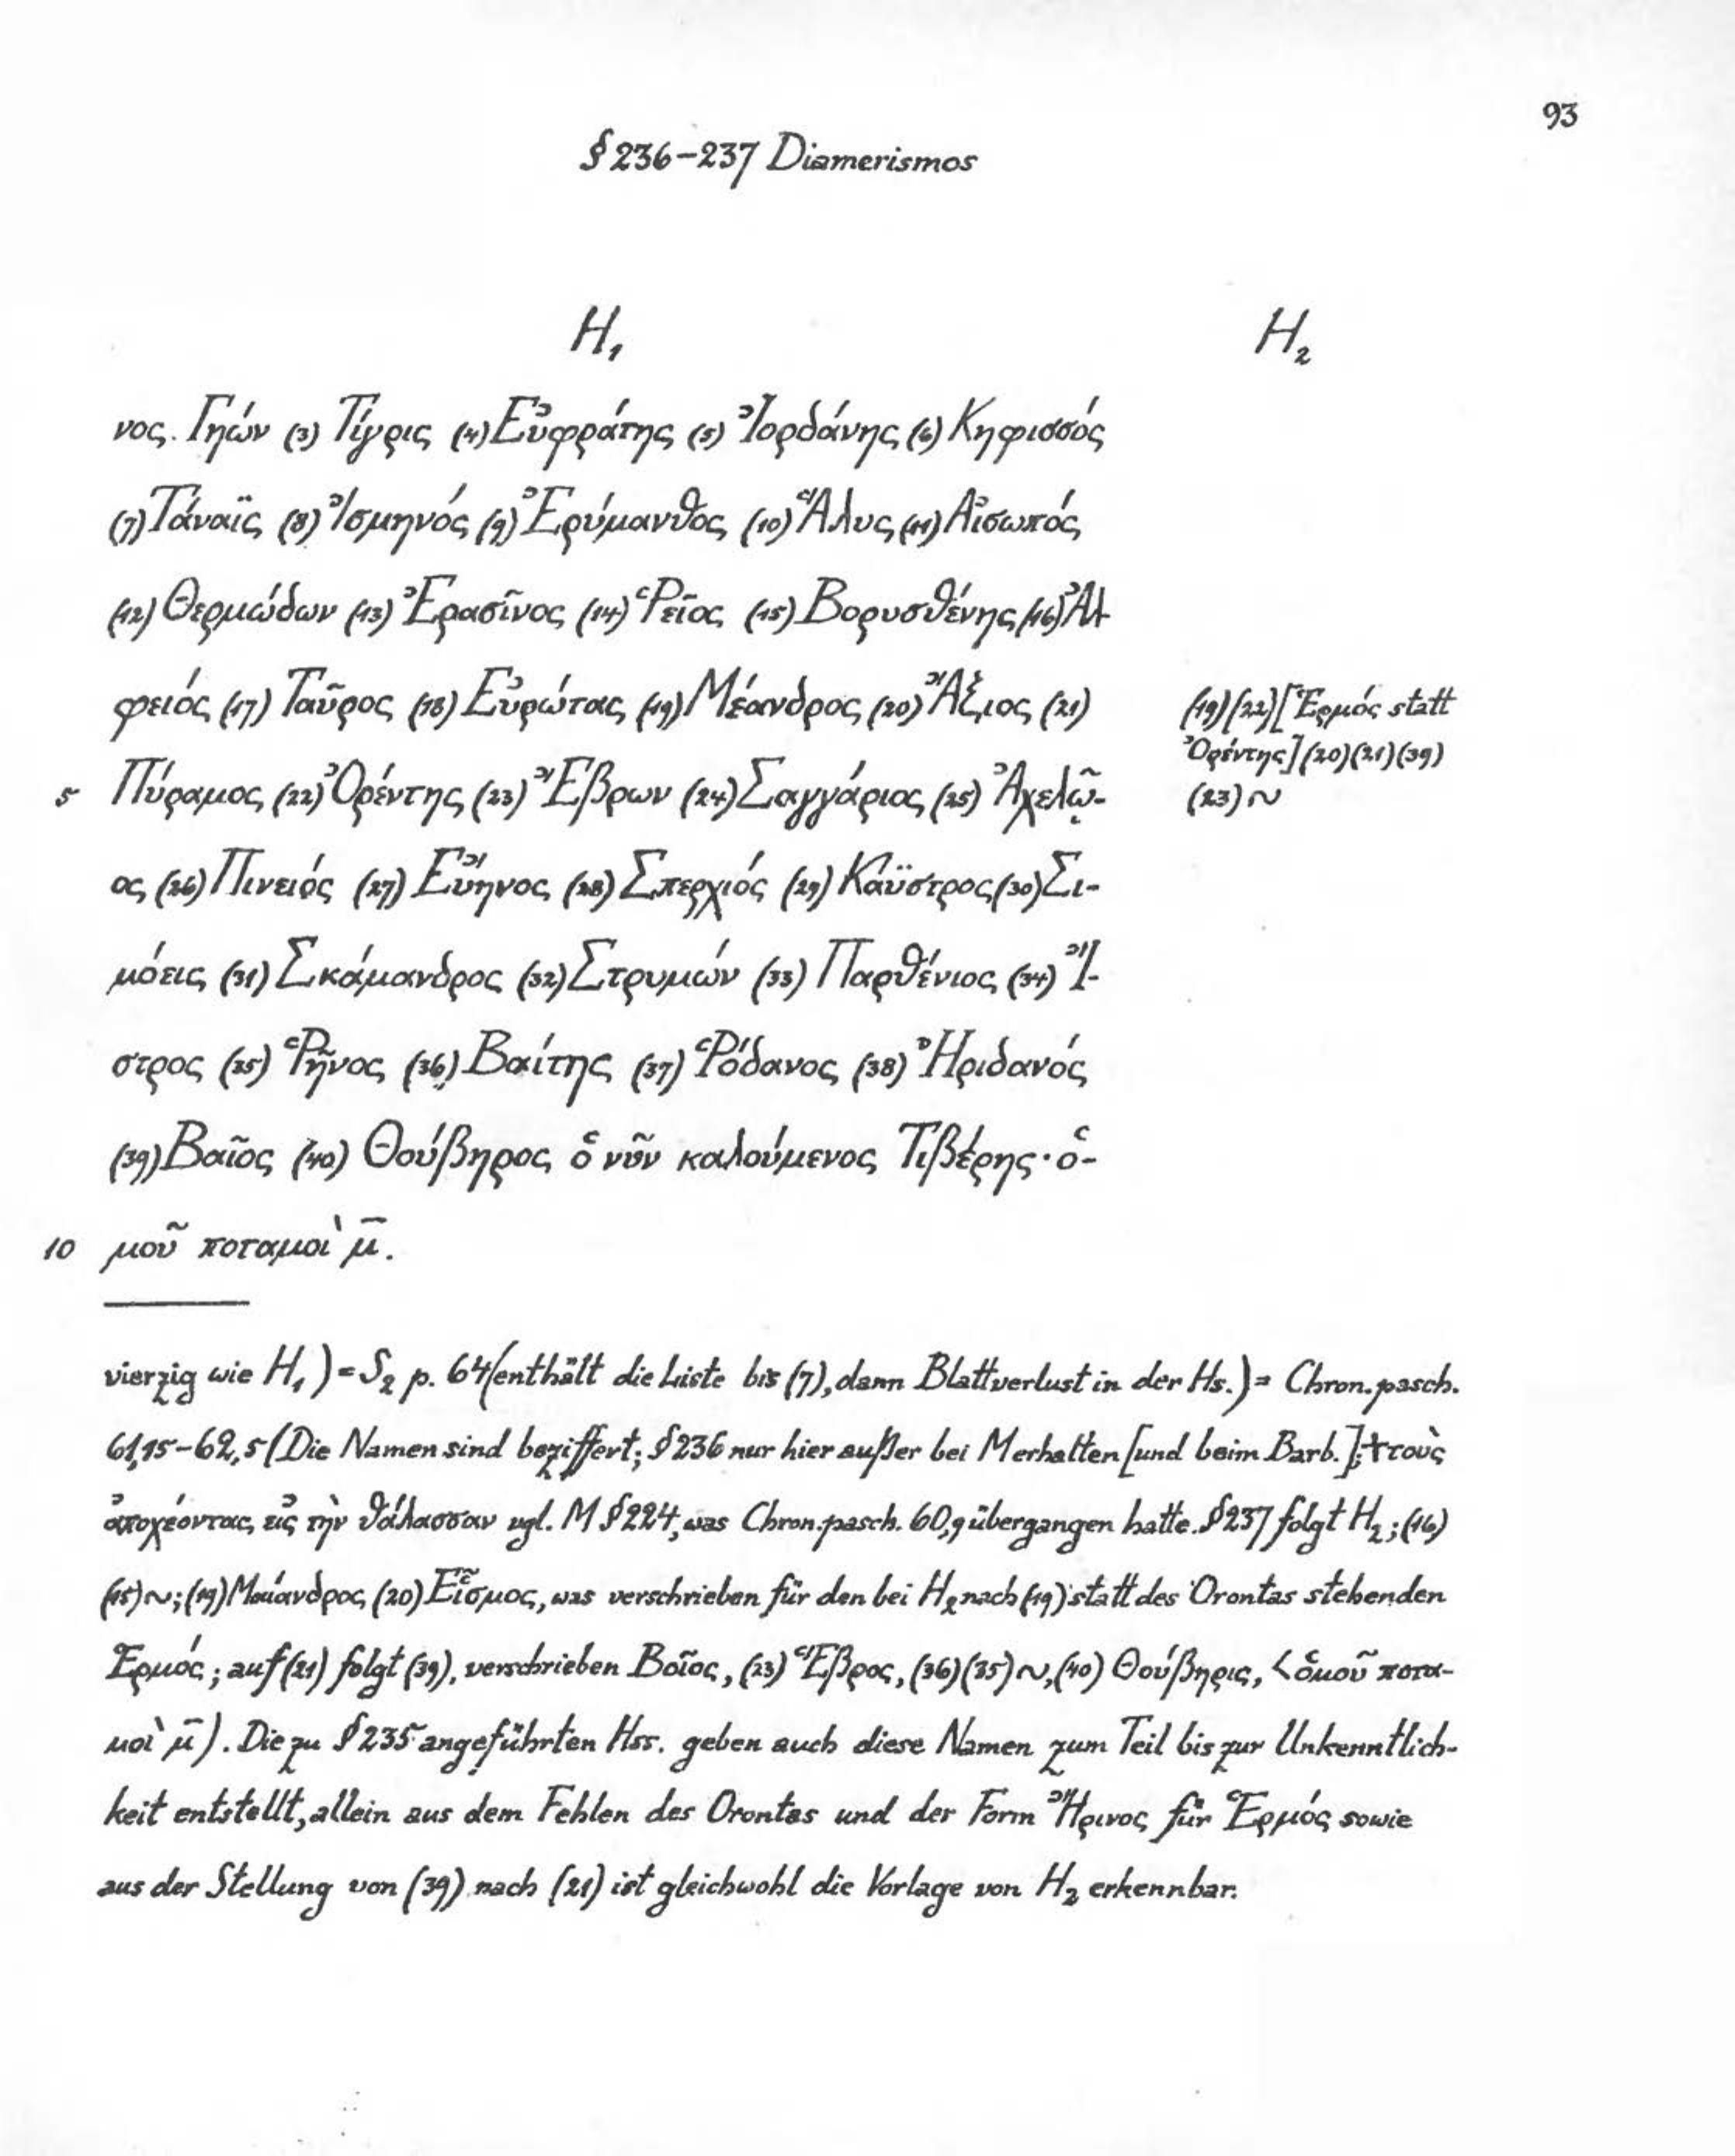 93
§ 236–237 Diamerismos
H₁
H₂
νος. Γηών (3) Τίγρις (4) Εὐφράτης (5) Ἰορδάνης (6) Κηφισσός
(7) Τάναϊς (8) Ἰσμηνός (9) Ἐρύμανθος (10) Ἅλυς (11) Αἰσωπός
(12) Θερμώδων (13) Ἐρασῖνος (14) Ῥεῖος (15) Βορυσθένης (16) Ἀλ-
φειός (17) Ταῦρος (18) Εὐρώτας (19) Μέανδρος (20) Ἄξιος (21)
(19) (22) [Ἑρμός statt
Ὀρέντης] (20) (21) (39)
5 Πύραμος (22) Ὀρέντης (23) Ἔβρων (24) Σαγγάριος (25) Ἀχελῶ-
(23) ~
ος (26) Πινειός (27) Εὔηνος (28) Σπερχιός (29) Κάϋστρος (30) Σι-
μόεις (31) Σκάμανδρος (32) Στρυμών (33) Παρθένιος (34) Ἴ-
στρος (35) Ῥῆνος (36) Βαίτης (37) Ῥόδανος (38) Ἠριδανός
(39) Βαῖος (40) Θούβηρος ὁ νῦν καλούμενος Τιβέρης· ὁ-
10 μοῦ ποταμοὶ μ̄.
vierzig wie H₁) = S₂ p. 64 (enthält die Liste bis (7), dann Blattverlust in der Hs.) = Chron. pasch.
61,15–62,5 (Die Namen sind beziffert; § 236 nur hier außer bei M erhalten [und beim Barb.]; + τοὺς
ἀποχέοντας εἰς τὴν θάλασσαν vgl. M § 224, was Chron. pasch. 60,9 übergangen hatte. § 237 folgt H₂; (16)
(15) ~; (19) Μαίανδρος (20) Εἶσμος, was verschrieben für den bei H₂ nach (19) statt des Orontas stehenden
Ἑρμός; auf (21) folgt (39), verschrieben Βοῖος, (23) Ἕβρος, (36) (35) ~, (40) Θούβηρις, < ὁμοῦ ποτα-
μοὶ μ̄). Die zu § 235 angeführten Hss. geben auch diese Namen zum Teil bis zur Unkenntlich-
keit entstellt, allein aus dem Fehlen des Orontas und der Form Ἤρινος für Ἑρμός sowie
aus der Stellung von (39) nach (21) ist gleichwohl die Vorlage von H₂ erkennbar.